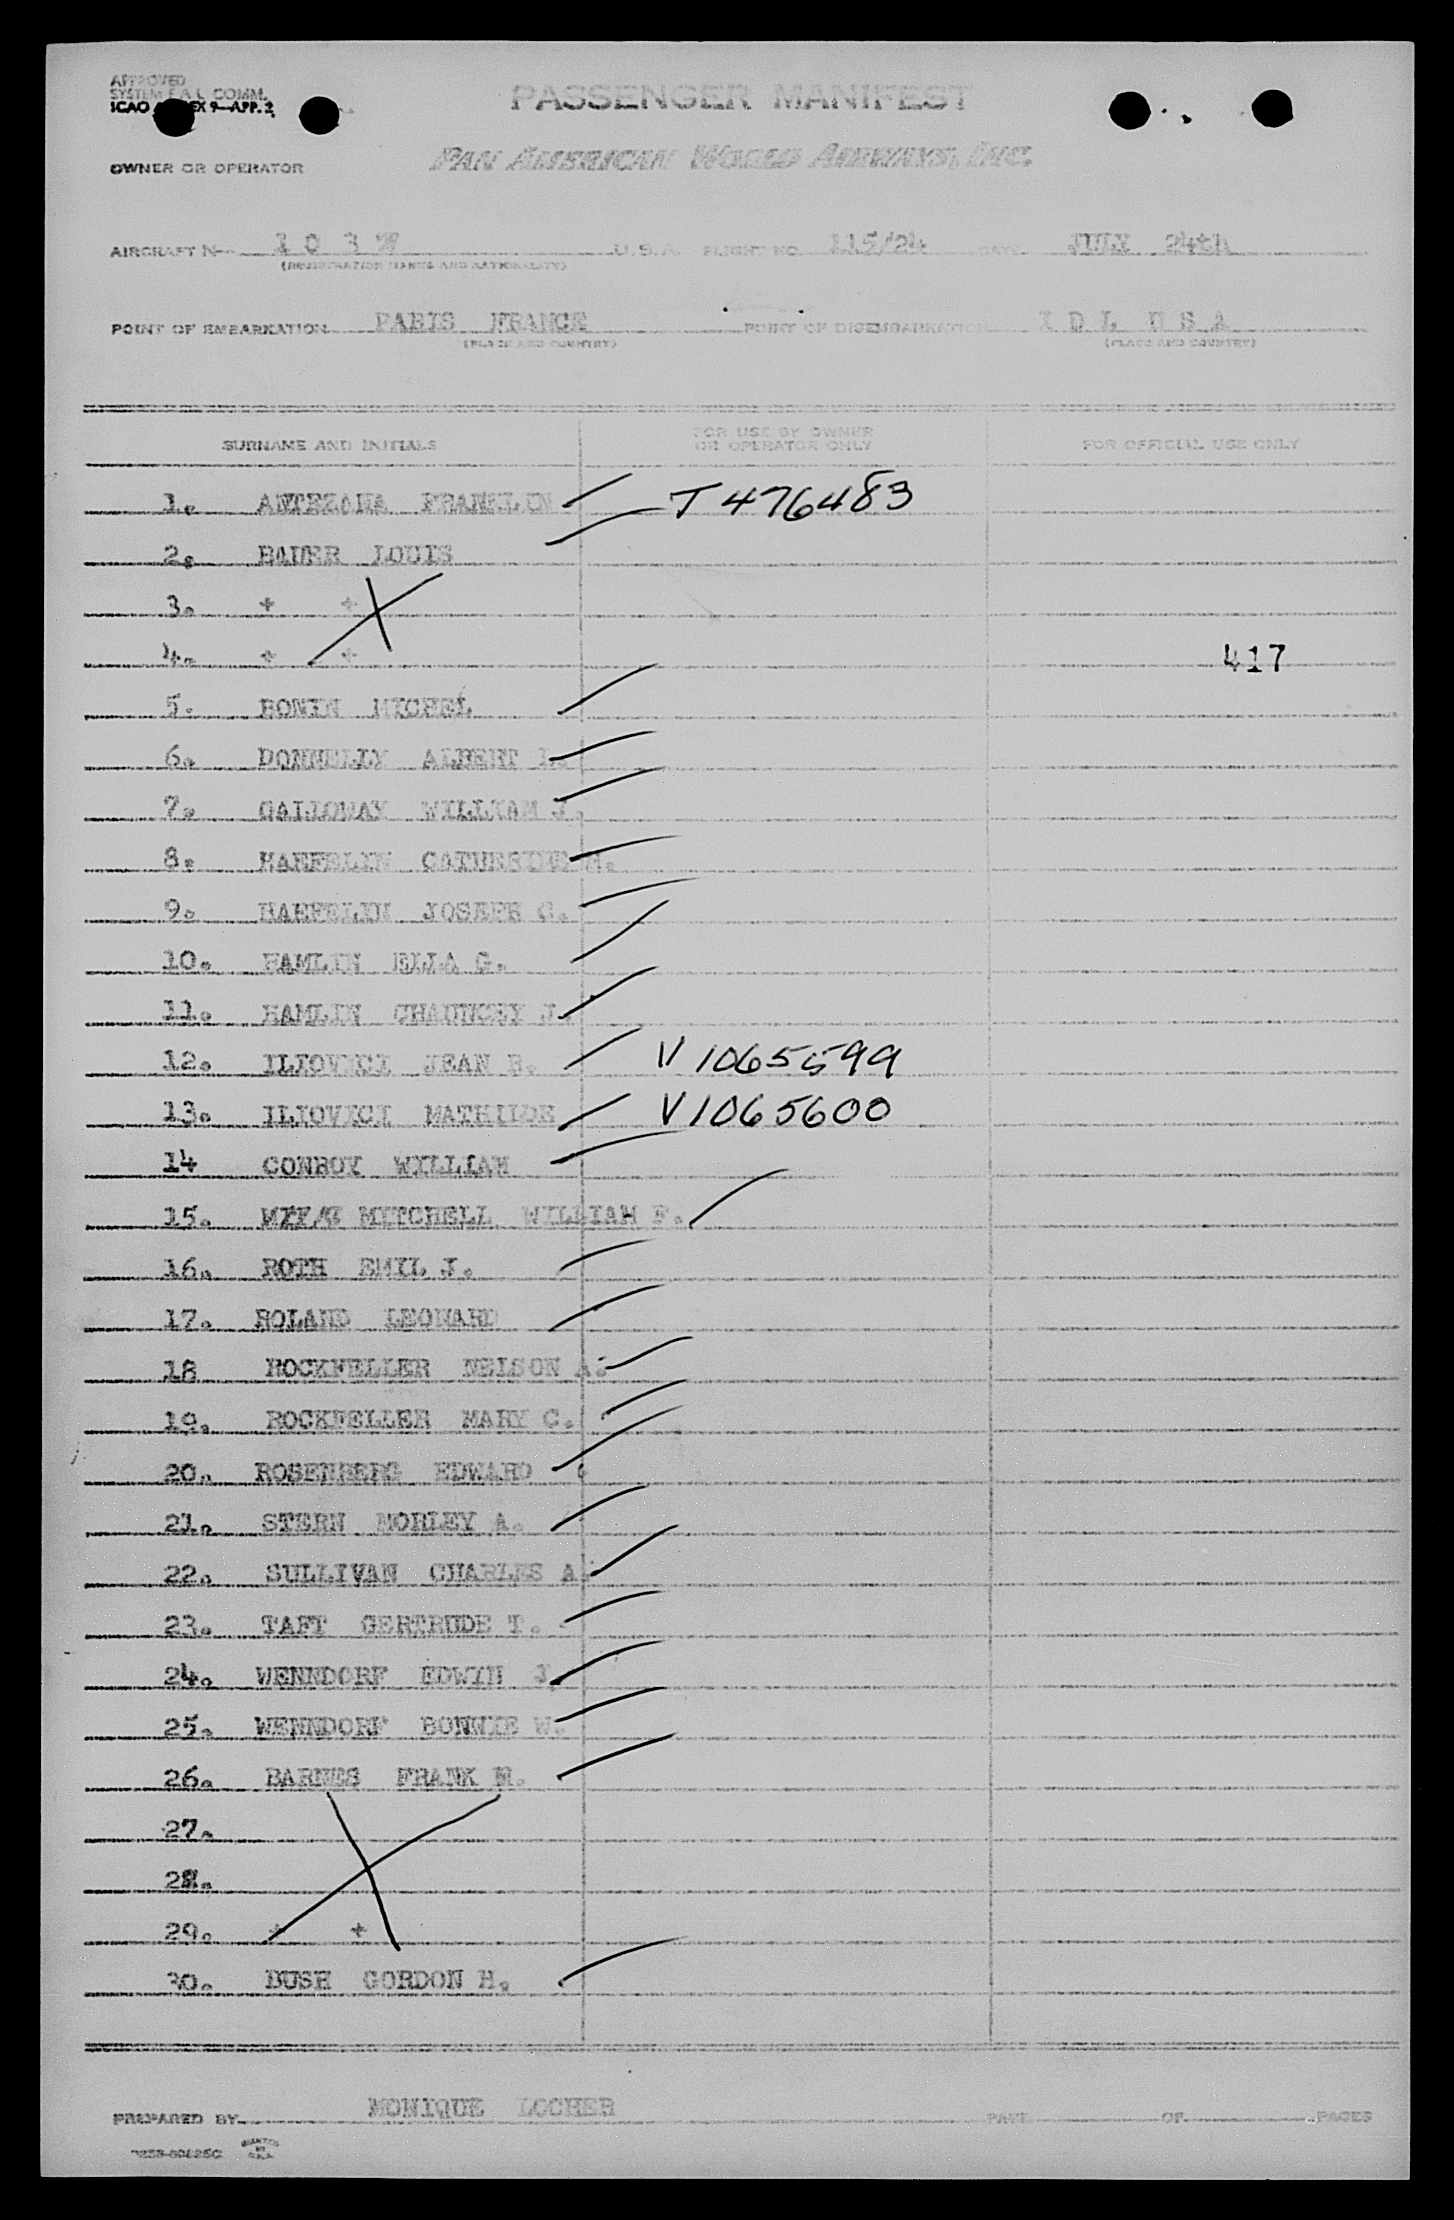 APPROVED
SYSTEM F A L COMM.
ICAO EX 9—APP. 2
PASSENGER MANIFEST
OWNER OR OPERATOR PAN AMERICAN WORLD AIRWAYS, INC.
AIRCRAFT N— 1 0 3 U.S.A. FLIGHT NO. 115/24 DATE JULY 24th
(REGISTRATION MARKS AND NATIONALITY)
POINT OF EMBARKATION PARIS FRANCE POINT OF DISEMBARKATION I D L U S A
(PLACE AND COUNTRY) (PLACE AND COUNTRY)
SURNAME AND INITIALS FOR USE BY OWNER OR OPERATOR ONLY FOR OFFICIAL USE ONLY
1. ANTEZANA FRANKLIN T 476483
2. BAUER LOUIS
3. + +
4. + + 417
5. BONIN MICHEL
6. DONNELLY ALBERT L.
7. GALLOWAY WILLIAM J.
8. HAEFELIN CATHERINE M.
9. HAEFELIN JOSEPH G.
10. HAMLIN ELLA G.
11. HAMLIN CHAUNCEY J.
12. ILIOVICI JEAN B. V 1065599
13. ILIOVICI MATHILDE V 1065600
14 CONROY WILLIAM
15. MITCHELL WILLIAM F.
16. ROTH EMIL J.
17. ROLAND LEONARD
18 ROCKFELLER NELSON A.
19. ROCKFELLER MARY C.
20. ROSENBERG EDWARD
21. STERN MORLEY A.
22. SULLIVAN CHARLES A.
23. TAFT GERTRUDE T.
24. WENNDORF EDWIN J.
25. WENNDORF BONNIE W.
26. BARNES FRANK M.
27.
28.
29. + +
30. BUSH GORDON H.
PREPARED BY MONIQUE LOCHER PAGE OF PAGES
PRINTED IN U.S.A.